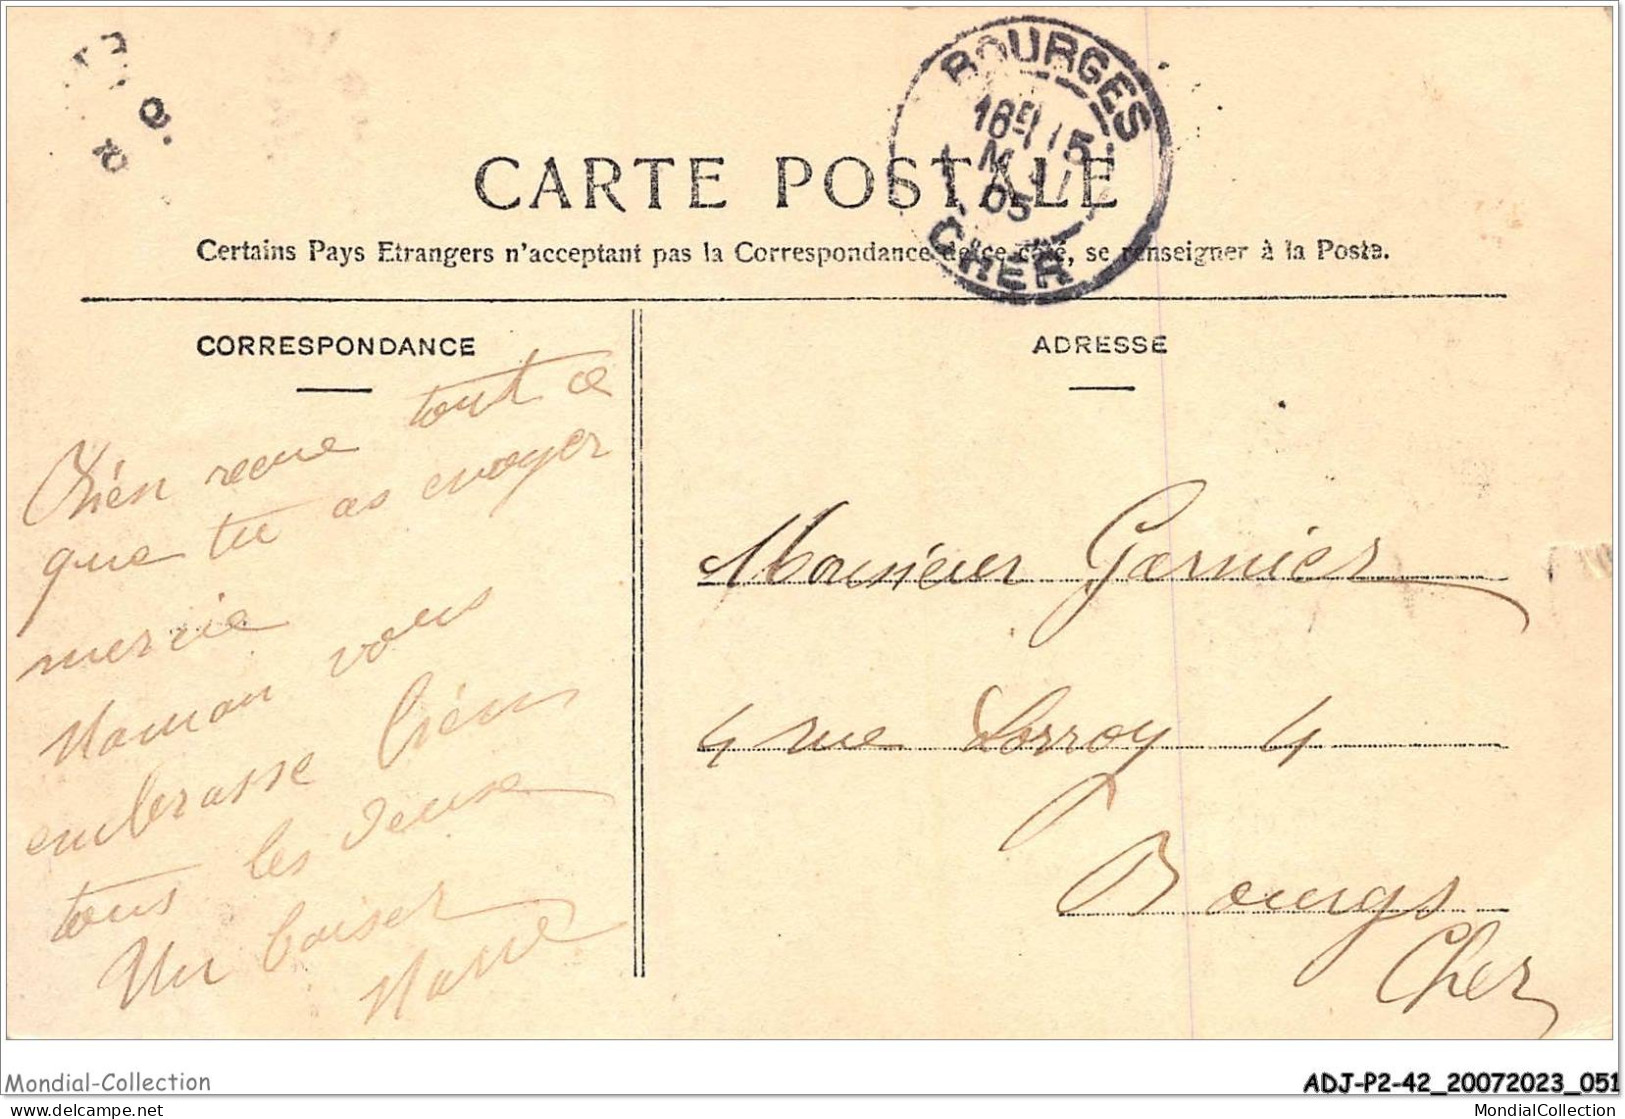 BOURGES
18
15
05
CHER
CARTE POSTALE
Certains Pays Etrangers n'acceptant pas la Correspondance de ce côté, se renseigner à la Poste.
CORRESPONDANCE
bien recue tout ce
que tu as envoyer
mercie
Maman vous
embrasse bien
tous les deuse
Un baiser
ADRESSE
Monsieur Garnier
4 rue Lorroy 4
Bourgs
Cher
Mondial-Collection
delcampe.net
ADJ-P2-42_20072023_051
MondialCollection